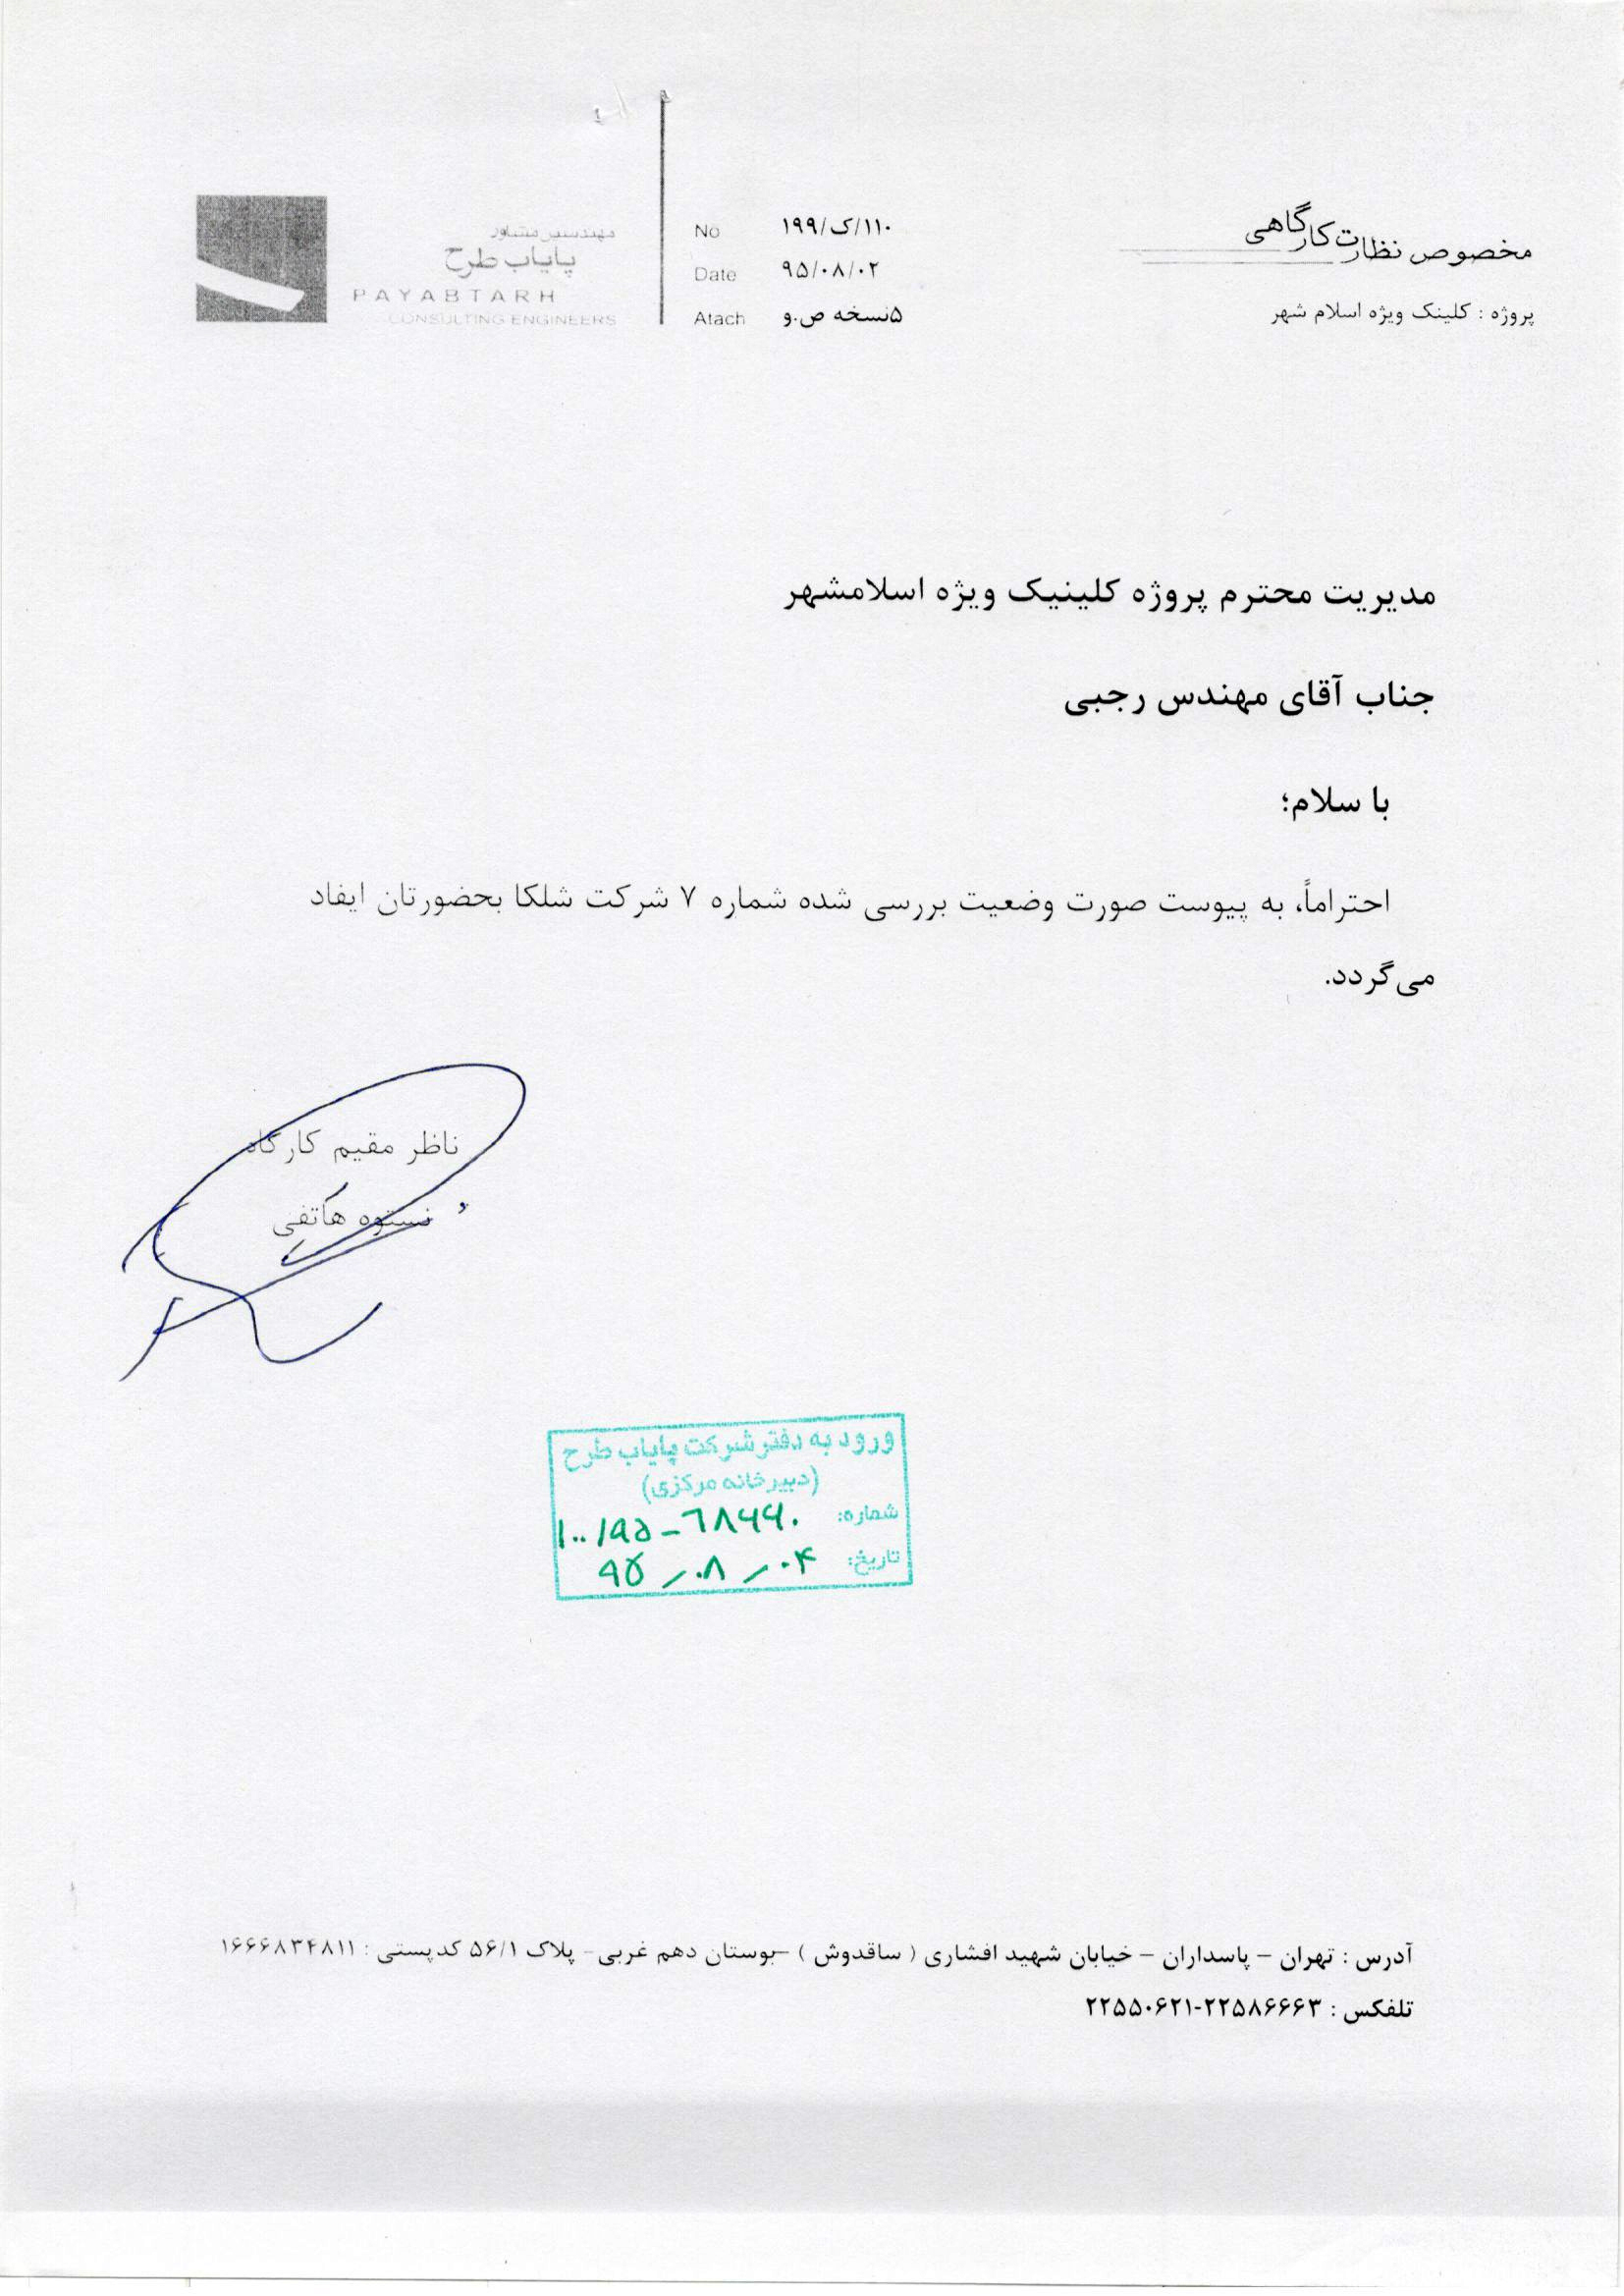 مخصوص نظارت کارگاهی
پروژه : کلینک ویژه اسلام شهر
No ۱۱۰/ک/۱۹۹
Date ۹۵/۰۸/۰۲
Atach ۵نسخه ص.و
مهندسین مشاور
پایاب طرح
PAYABTARH
CONSULTING ENGINEERS
مدیریت محترم پروژه کلینیک ویژه اسلامشهر
جناب آقای مهندس رجبی
با سلام؛
احتراماً، به پیوست صورت وضعیت بررسی شده شماره ۷ شرکت شلکا بحضورتان ایفاد
می‌گردد.
ناظر مقیم کارگاه
نستوه هاتفی
ورود به دفتر شرکت پایاب طرح
(دبیرخانه مرکزی)
شماره: ۱۰۰/۹۵-۶۸۶۶۰
تاریخ: ۹۵/۰۸/۰۴
آدرس : تهران – پاسداران – خیابان شهید افشاری ( ساقدوش ) –بوستان دهم غربی- پلاک ۵۶/۱ کدپستی : ۱۶۶۶۸۳۴۸۱۱
تلفکس : ۲۲۵۵۰۶۲۱-۲۲۵۸۶۶۶۳